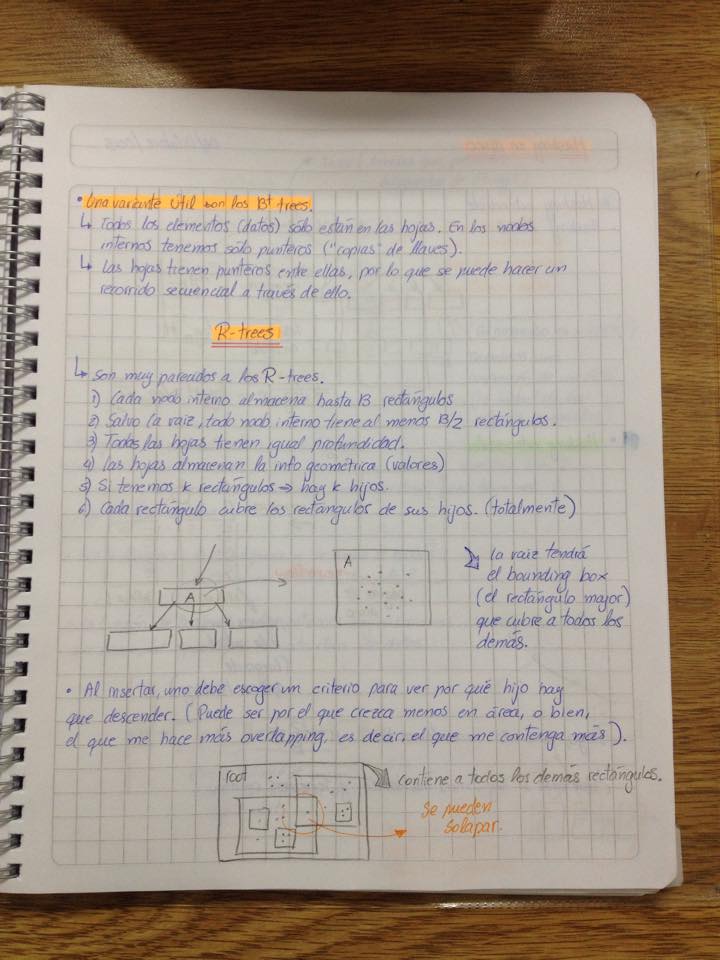 • Una variante útil son los B+ trees.
↳ Todos los elementos (datos) sólo están en las hojas. En los nodos
internos tenemos sólo punteros ("copias" de llaves).
↳ Las hojas tienen punteros entre ellas, por lo que se puede hacer un
recorrido secuencial a través de ello.
R-trees
↳ Son muy parecidos a los R-trees.
1) Cada nodo interno almacena hasta B rectángulos
2) Salvo la raiz, todo nodo interno tiene al menos B/2 rectángulos.
3) Todas las hojas tienen igual profundidad.
4) Las hojas almacenan la info geométrica (valores)
5) Si tenemos k rectángulos → hay k hijos.
6) Cada rectángulo cubre los rectángulos de sus hijos. (totalmente)
A
A
La raiz tendrá
el bounding box
(el rectángulo mayor)
que cubre a todos los
demás.
• Al insertar, uno debe escoger un criterio para ver por qué hijo hay
que descender. (Puede ser por el que crezca menos en área, o bien,
el que me hace más overlapping, es decir, el que me contenga más).
root
contiene a todos los demás rectángulos.
Se pueden
solapar.